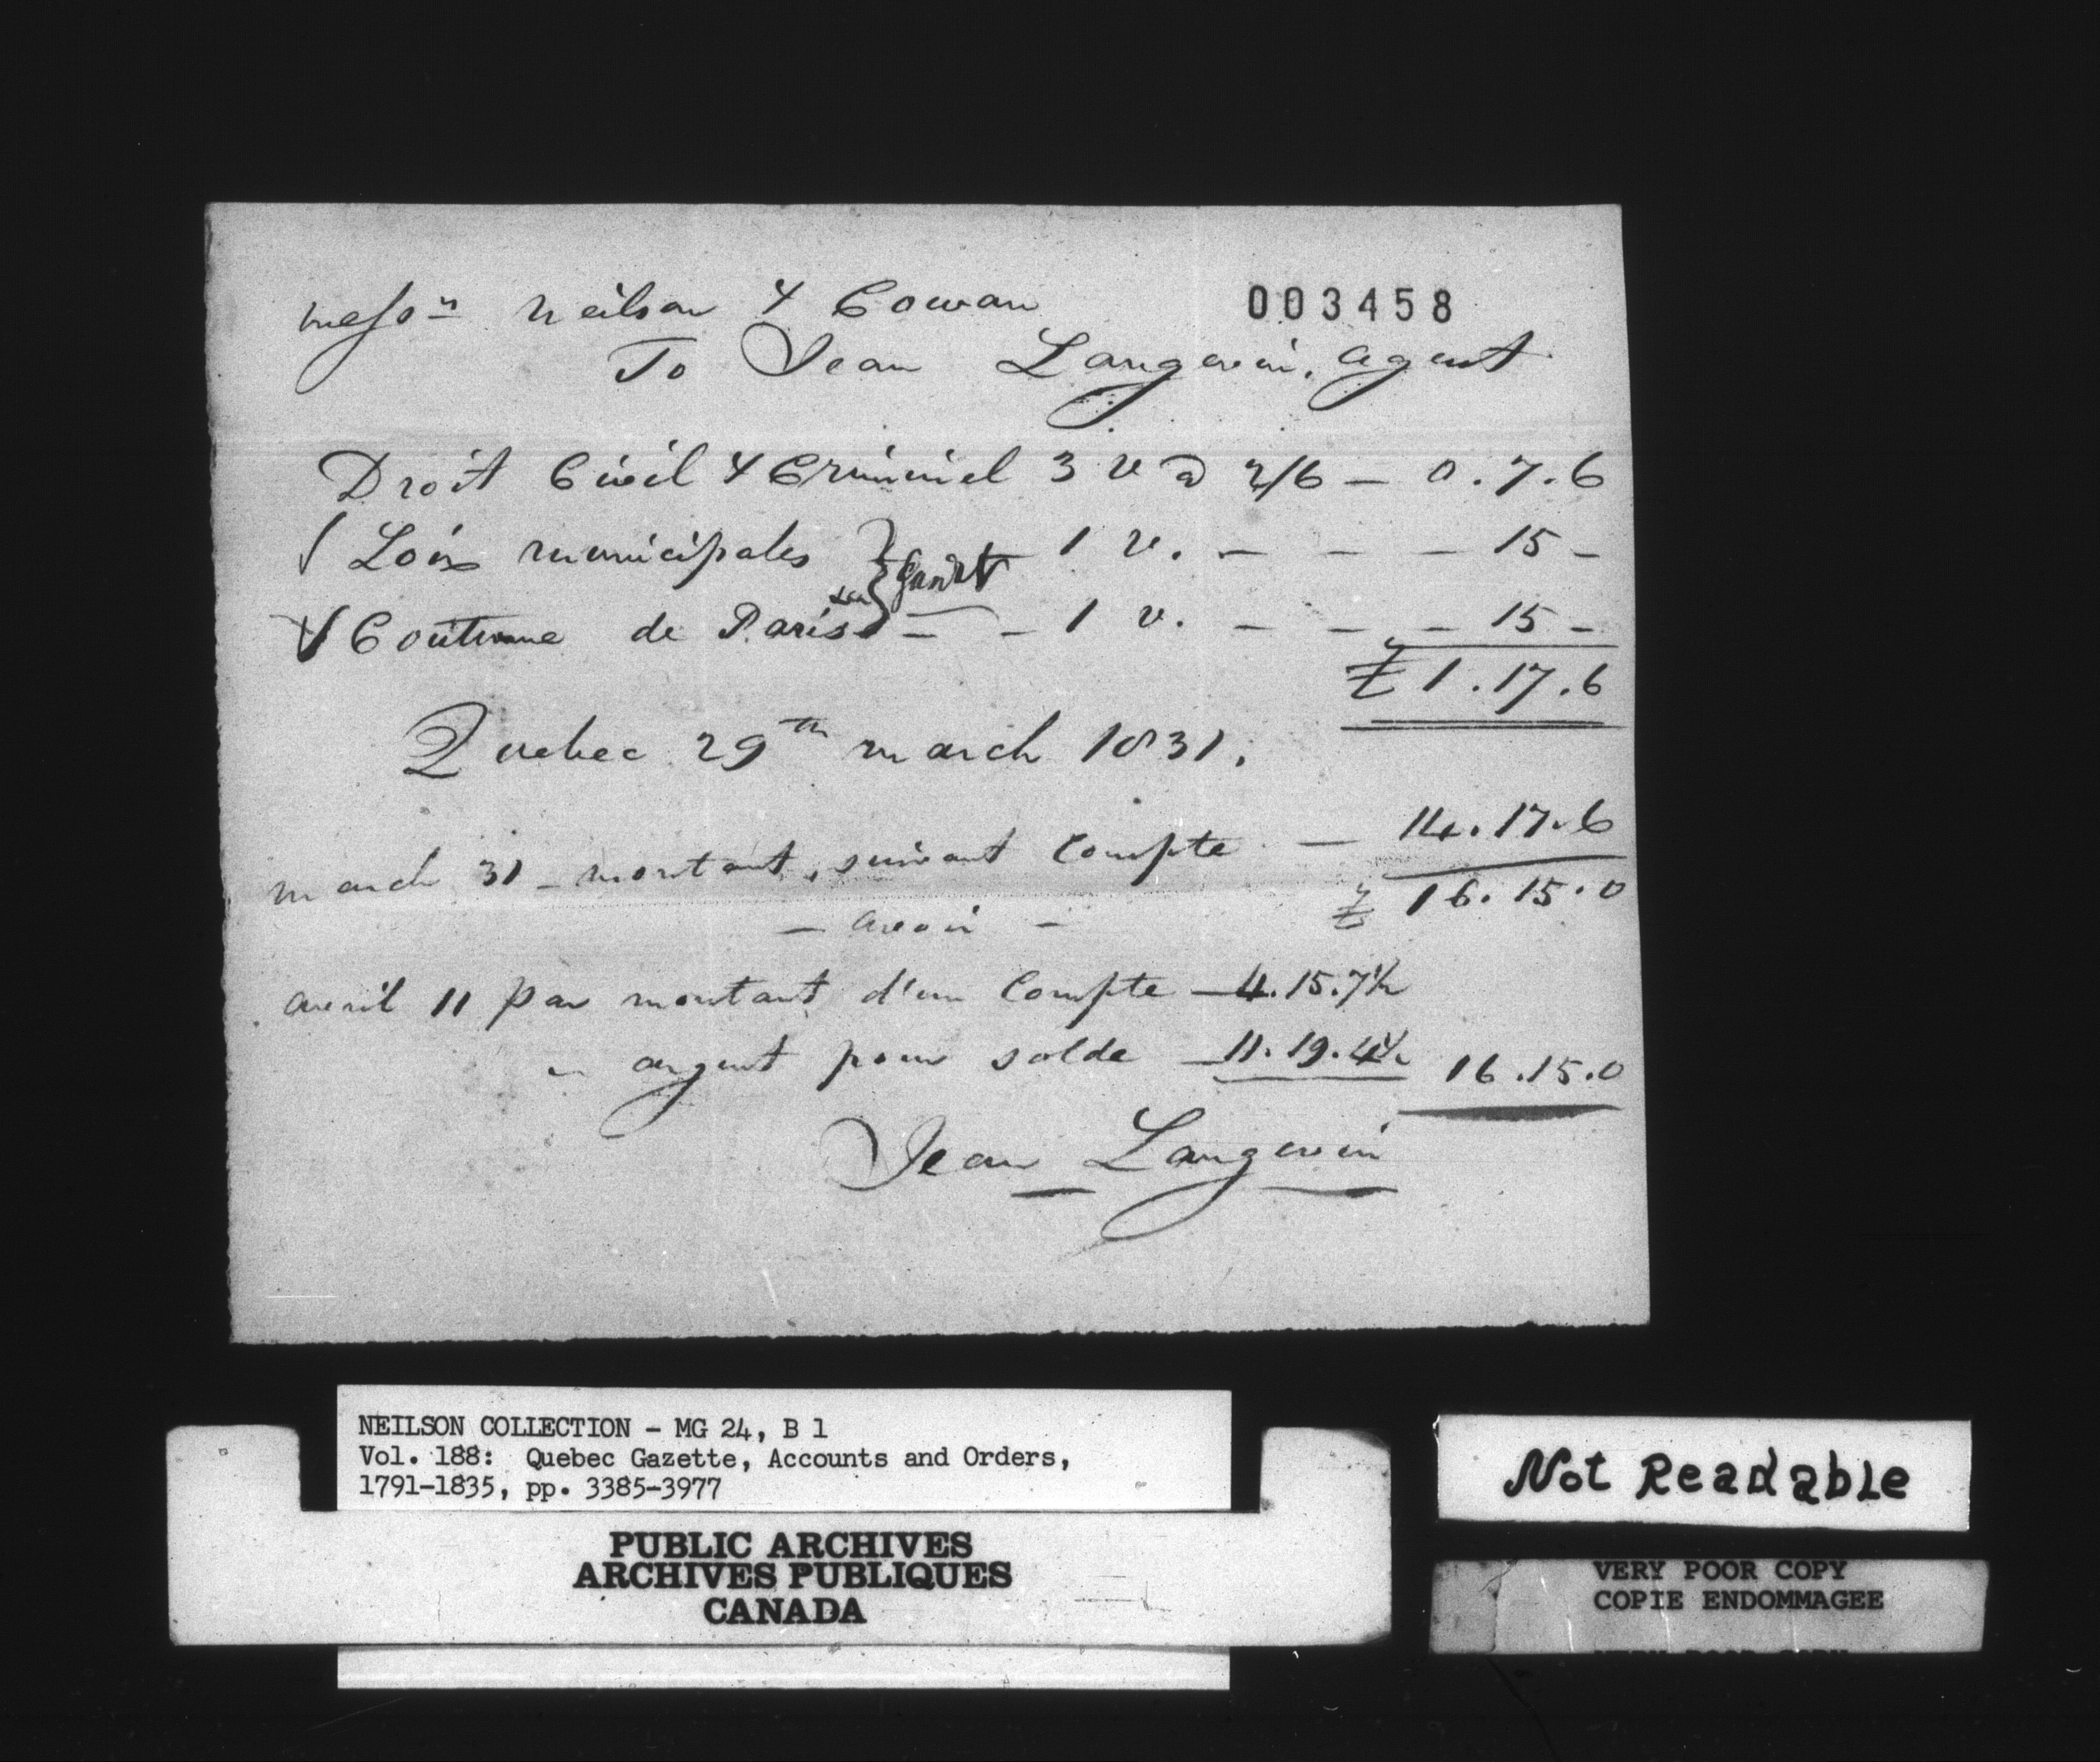 Messrs Neilson & Cowan
003458
To Jean Langevin, agent
Droit Civil & Criminel 3 v @ 2/6 — 0.7.6
Loix municipales 1 v. — — — 15 —
Coutume de Paris — — 1 v. — — — 15 —
£ 1.17.6
Quebec 29th march 1831.
march 31 — montant, suivant Compte — 14.17.6
£ 16.15.0
— avoir —
avril 11 par montant d'un Compte — 4.15.7½
" argent pour solde — 11.19.4½ 16.15.0
Jean Langevin
NEILSON COLLECTION - MG 24, B 1
Vol. 188: Quebec Gazette, Accounts and Orders,
1791-1835, pp. 3385-3977
PUBLIC ARCHIVES
ARCHIVES PUBLIQUES
CANADA
Not Readable
VERY POOR COPY
COPIE ENDOMMAGEE